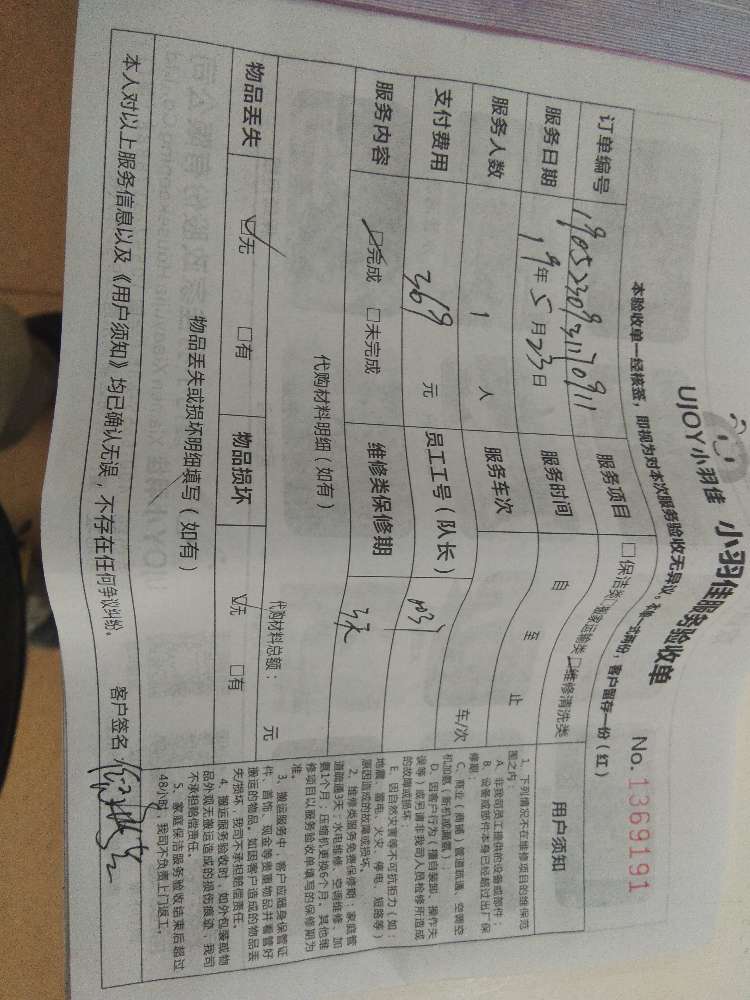 UJOY小羽佳 小羽佳服务验收单
No.1369191
本验收单一经核签，即视为对本次服务验收无异议。本单一式两份，客户留存一份（红）
订单编号 服务项目 □保洁类 □搬家运输类 □维修清洗类
服务日期 19年5月23日 服务时间 自 至 止
服务人数 1 人 服务车次 车/次
支付费用 369 元 员工工号（队长）
服务内容 ☑完成 □未完成 维修类保修期 3天
代购材料明细（如有） 代购材料总额： 元
物品丢失 ☑无 □有 物品损坏 ☑无 □有
物品丢失或损坏明细填写（如有）
本人对以上服务信息以及《用户须知》均已确认无误，不存在任何争议纠纷。 客户签名
用户须知
1、下列情况不在维修项目的维保范
围之内：
A、非我司员工提供的设备或部件；
B、设备或部件本身已经超过出厂保
修期；
C、商业（商铺）管道疏通、空调空
机加氨（新机或漏氨）；
D、因客户行为（擅自装卸、操作失
误等）或另请非我司人员检修所造成
的故障或损坏。
E、因自然灾害等不可抗拒力（如：
地震、雷电、火灾、停电、短路等）
原因造成的故障或损坏。
2、维修类服务免费保修期：家庭管
道疏通3天；水电维修、空调维修、加
氨1个月；压缩机更换6个月。其他维
修项目以服务验收单填写的保修期为
准。
3、搬运服务中，客户应随身保管证
件、首饰、现金等贵重物品并看管好
搬运的物品。如因客户造成的物品丢
失/损坏，我司不承担赔偿责任。
4、搬运服务验收时，如外包装或物
品外观无搬运造成的损伤痕迹，我司
不承担赔偿责任。
5、家庭保洁服务验收结束后超过
48小时，我司不负责上门返工。